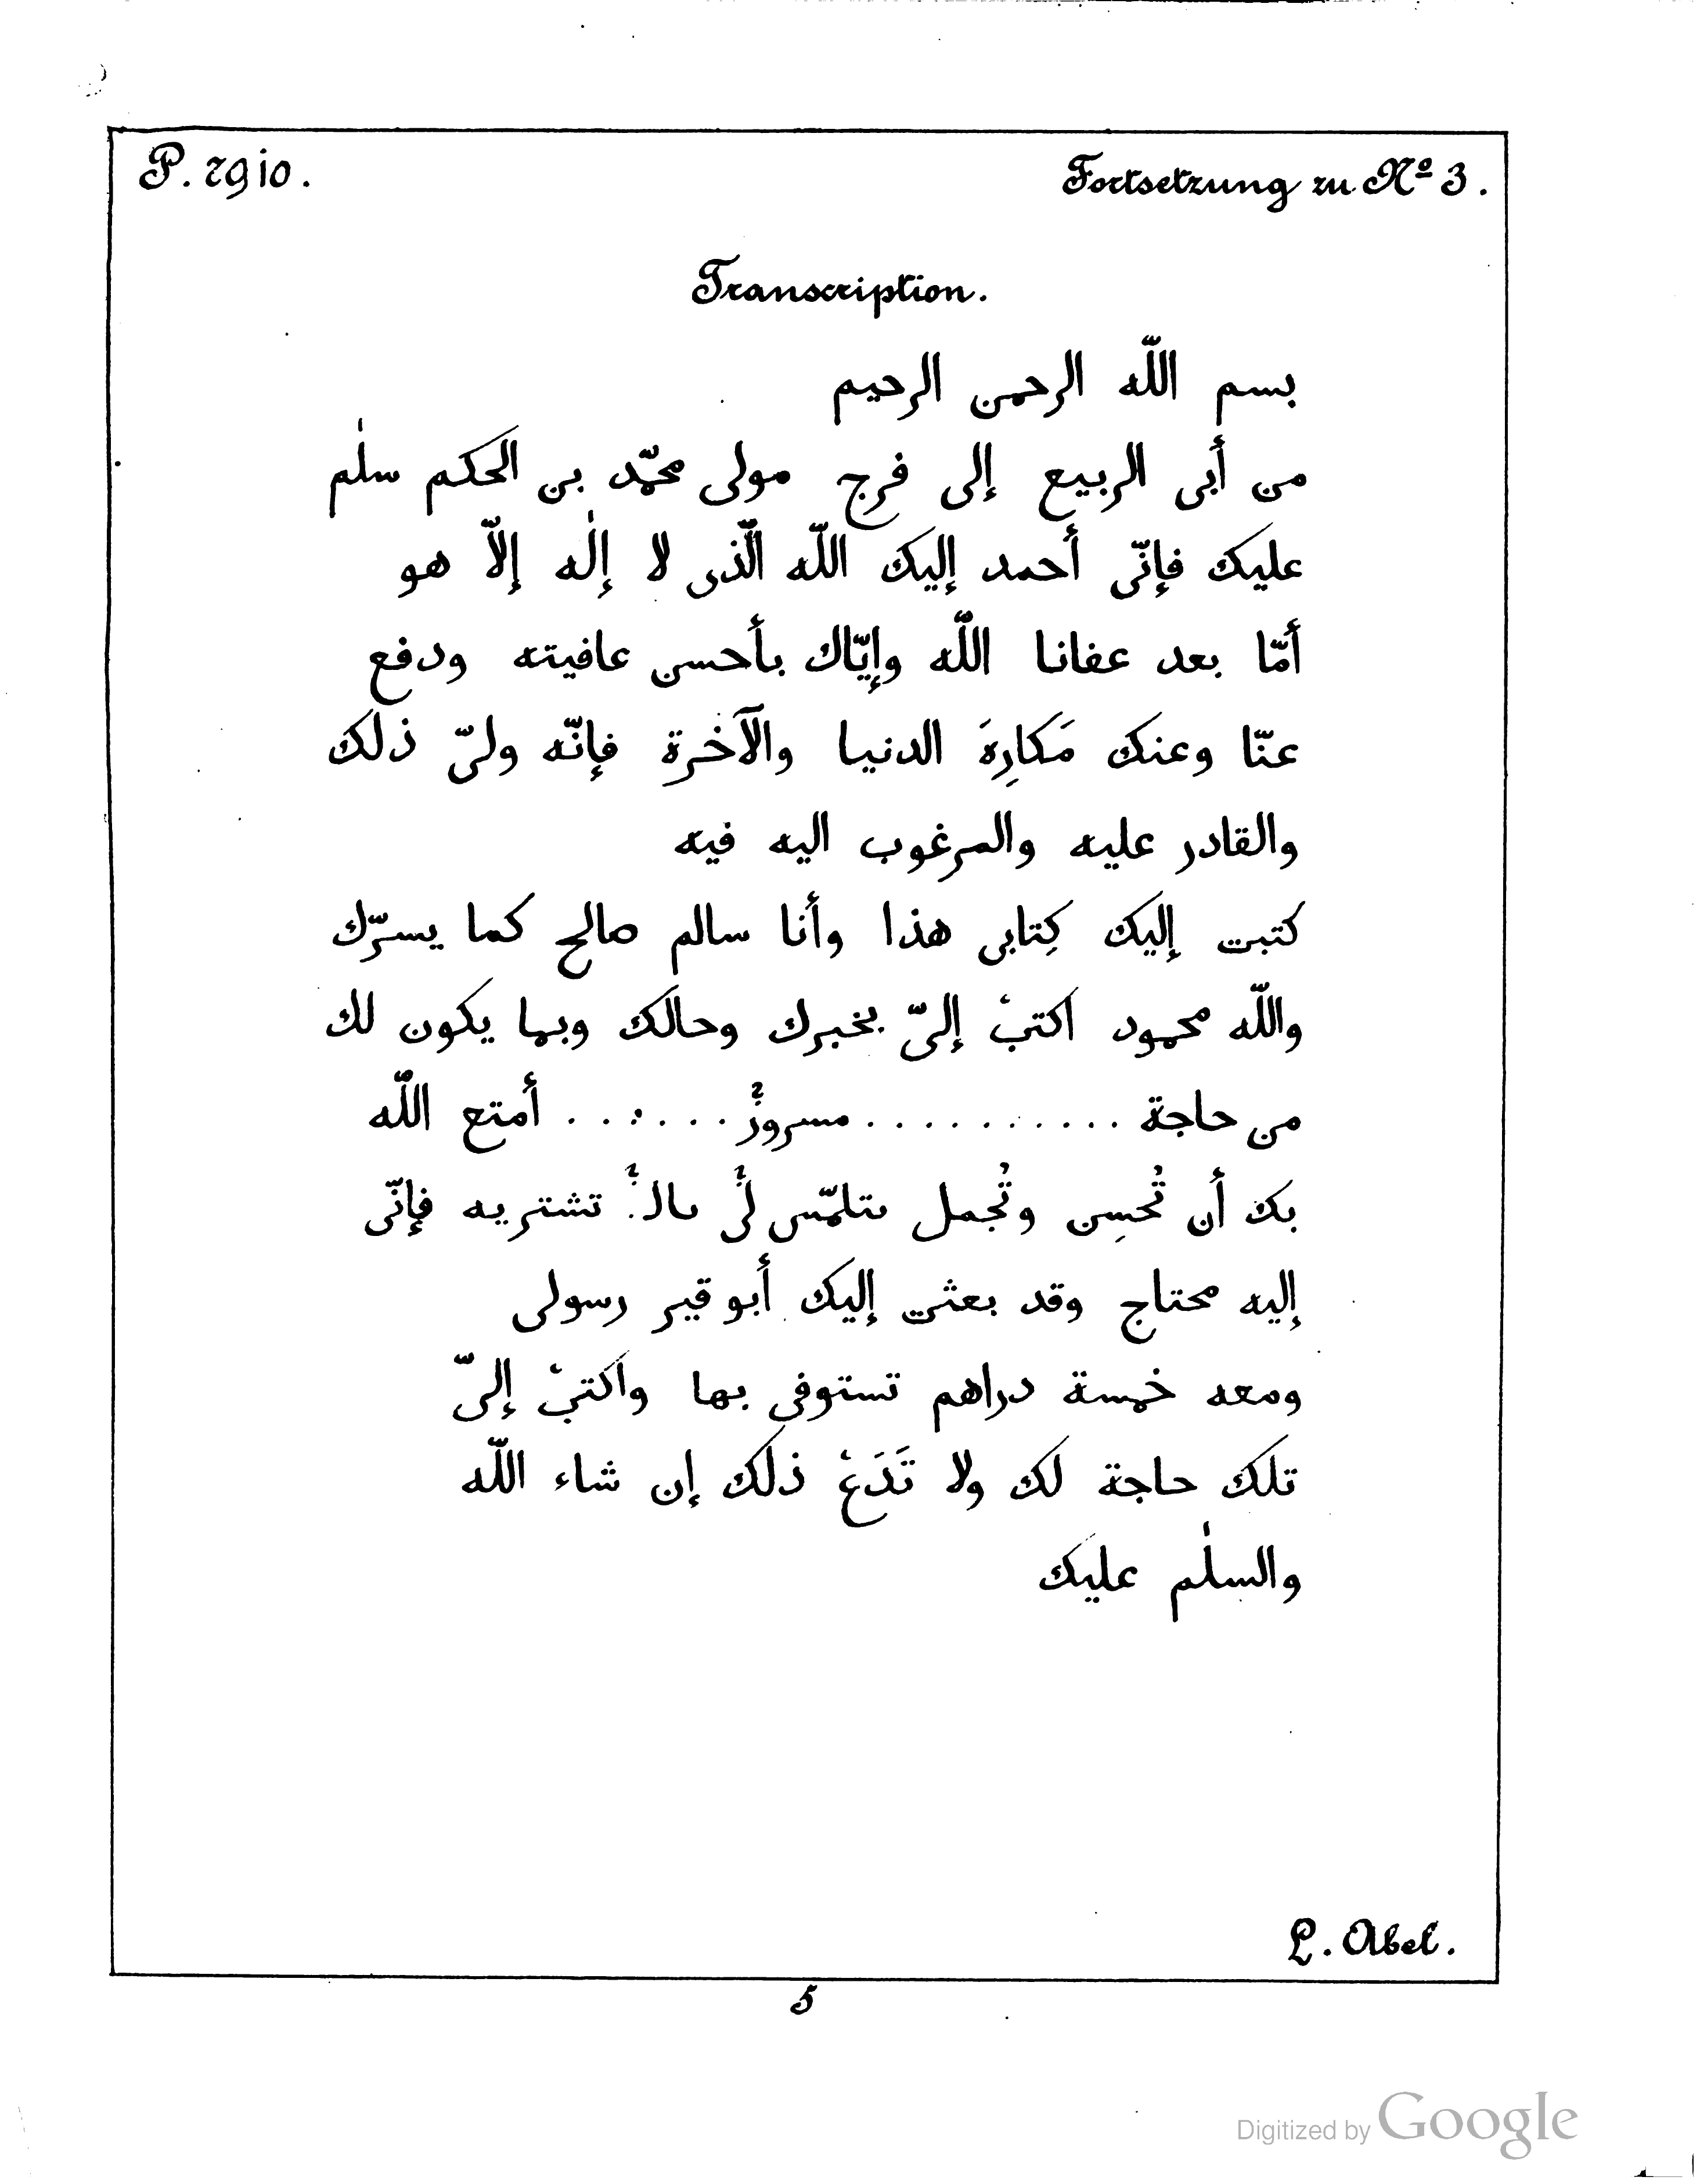 P. 2910.
Fortsetzung zu Nº 3.
Transcription.
بسم اللّه الرحمن الرحيم
من أبى الربيع إلى فرج مولى محمّد بن الحكم سلٰم
عليك فإنّى أحمد إليك اللّه الّذى لا إلٰه إلّا هو
أمّا بعد عفانا اللّه وإيّاك بأحسن عافيته ودفع
عنّا وعنك مَكارِهَ الدنيا والآخرة فإنّه ولىّ ذلك
والقادر عليه والمرغوب اليه فيه
كتبت إليك كِتابى هذا وأنا سالم صالح كما يسرّك
واللّه محمود اكتبْ إلىّ بخبرك وحالك وبما يكون لك
من حاجة .......... مسرور ...... أمتع اللّه
بك أن تُحسِن وتُجمل تشتريه فإنّى
إليه محتاج وقد بعثت إليك أبو قير رسولى
ومعه خمسة دراهم تستوفى بها واكتبْ إلىّ
تلك حاجة لك ولا تَدَعْ ذلك إن شاء اللّه
والسلٰم عليك
L. Abel.
5
Digitized by Google